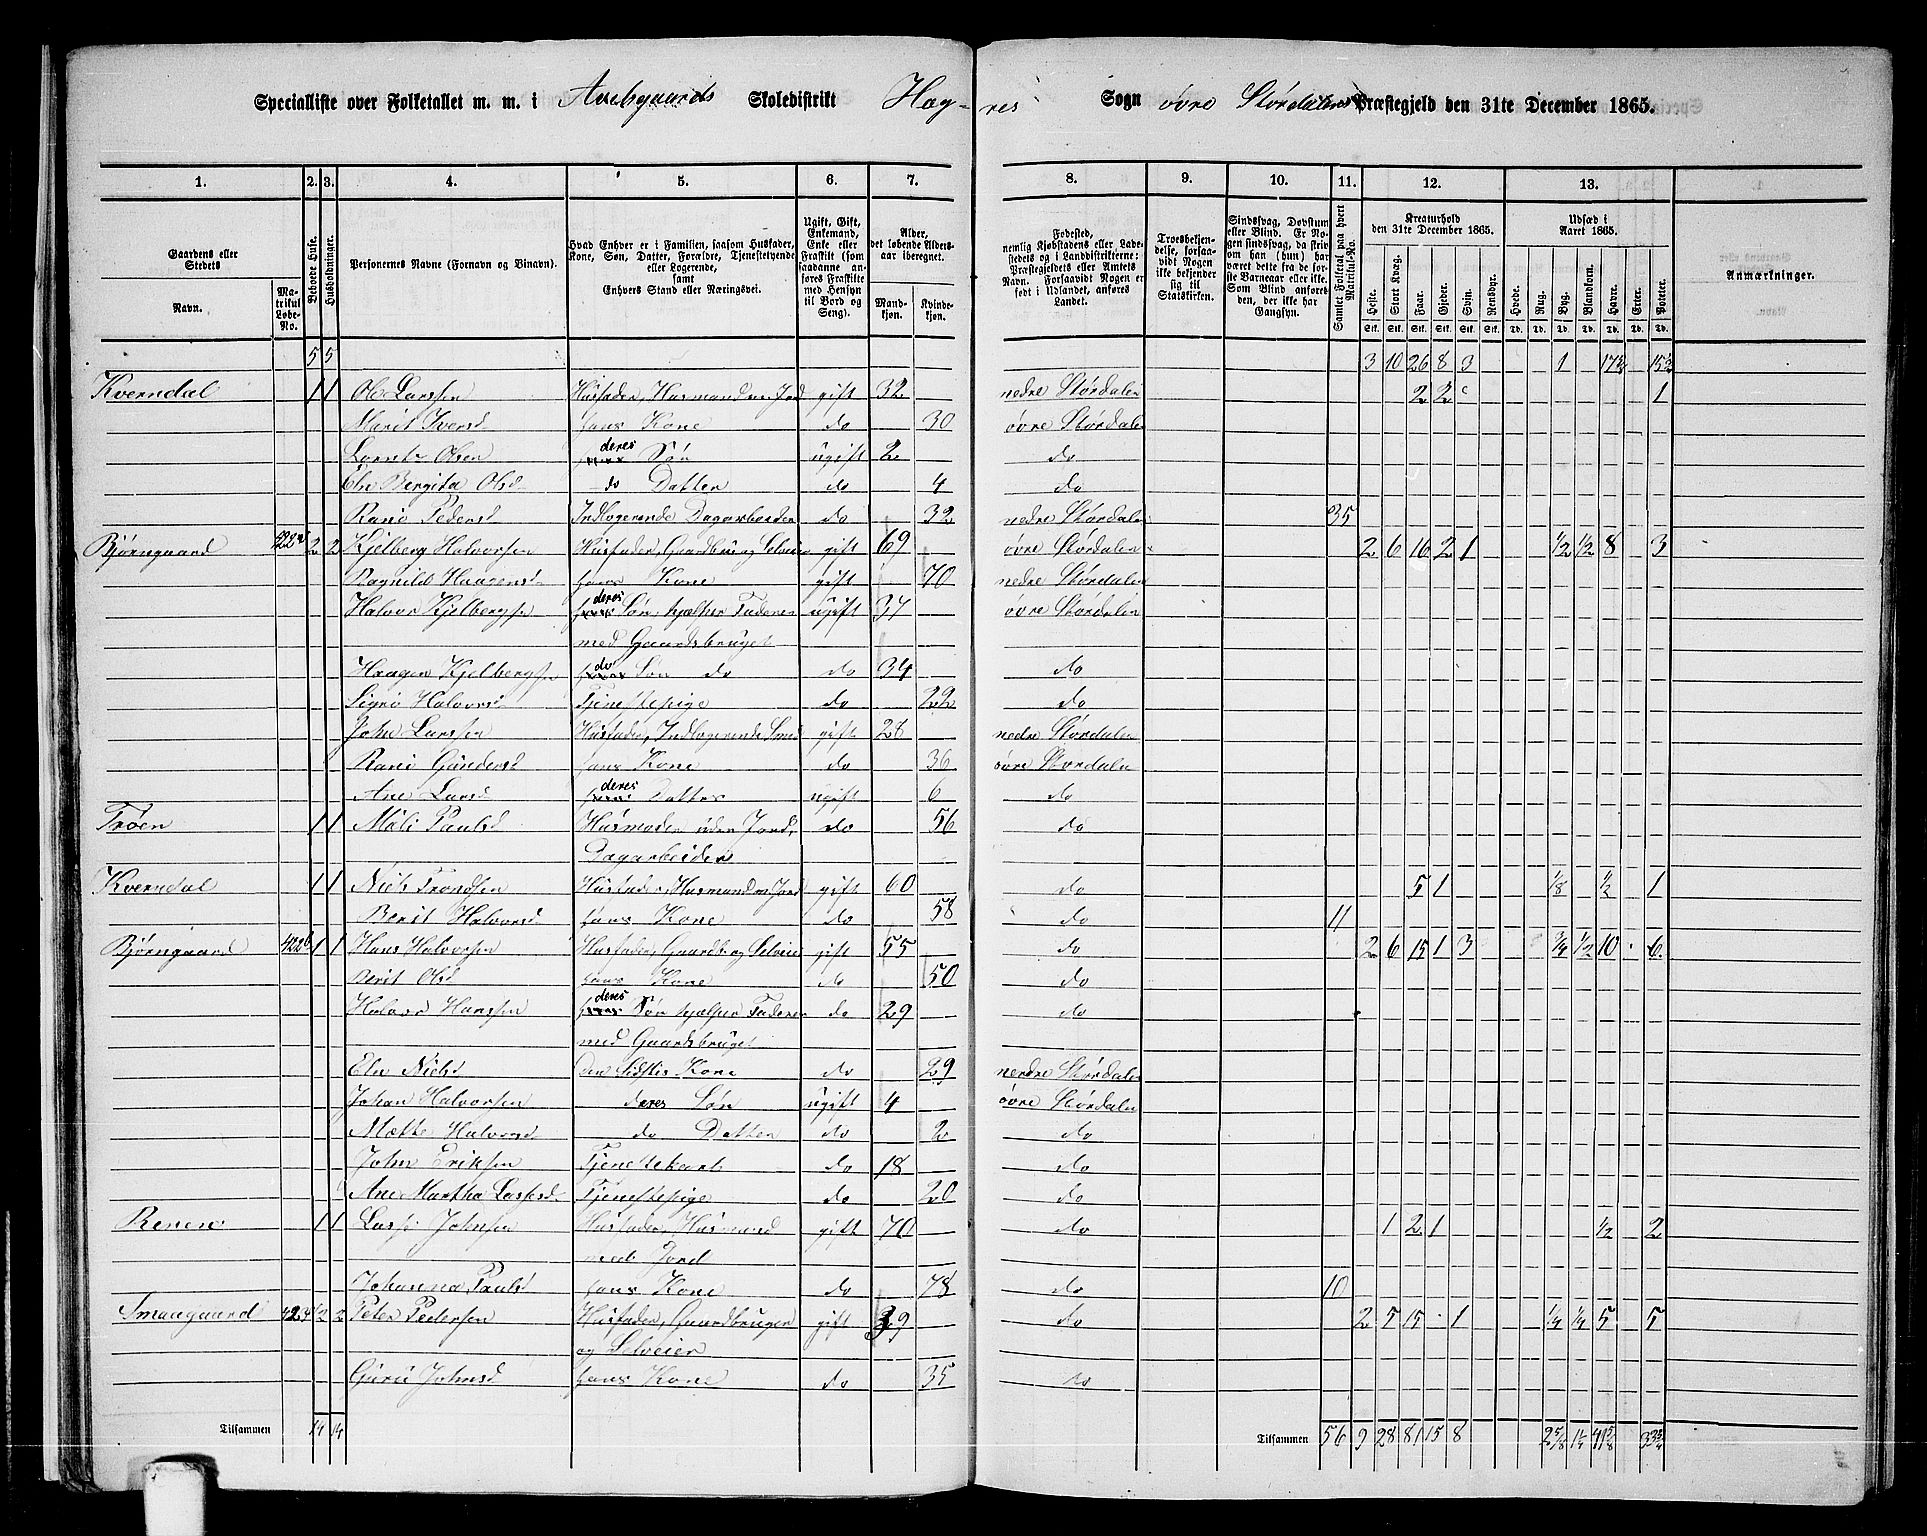 Specialliste over Folketallet m. m. i Skoledistrikt Hegres Sogn øvre Størdalens Præstegjeld den 31te December 1865.
1. 2. 3. 4. 5. 6. 7. 8. 9. 10. 11. 12. 13.
Gaardens eller Stedets Navn. Matrikul Løbe-No.
Beboede Huse.
Husholdninger.
Personernes Navne (Fornavn og Binavn).
Hvad Enhver er i Familien, saasom Husfader, Kone, Søn, Datter, Forældre, Tjenestetyende eller Logerende, samt Enhvers Stand eller Næringsvei.
Ugift, Gift, Enkemand, Enke eller Fraskilt (som saadanne anføres Fraskilte med Hensyn til Bord og Seng).
Alder, det løbende Aldersaar iberegnet. Mandkjøn. Kvindekjøn.
Fødested, nemlig Kjøbstadens eller Ladestedets og i Landdistrikterne: Præstegjeldets eller Amtets Navn. Forsaavidt Nogen er født i Udlandet, anføres Landet.
Troesbekjendelse, forsaavidt Nogen ikke bekjender sig til Statskirken.
Sindssvag, Døvstum eller Blind. Er Nogen sindssvag, da skrives om han (hun) har været dette fra de første Barneaar eller ikke. Som Blind anføres den, der ikke har Gangsyn.
Samlet Folketal paa hvert Matrikul-No.
Kreaturhold den 31te December 1865. Heste. Stort Kvæg. Faar. Gjeder. Svin. Rensdyr.
Udsæd i Aaret 1865. Hvede. Rug. Byg. Blandkorn. Havre. Erter. Poteter.
Anmærkninger.
5 5 3 10 26 8 3 1 17½ 15½
Kverndal 1 1 Ole Larssen Husfader, Husmand m. Jord gift 32 nedre Størdalen 2 2 1
Marit Iversd hans Kone do 30 øvre Størdalen
Olsen deres Søn ugift 2 do
Eln Bergita Olsd do Datter do 4 do
Pedersd Indlogerende Dagarbeider do 32 nedre Størdalen 35
Bjørngaard 422a 2 2 Kjelberg Halvorsen Husfader, Gaardbr og Selveier gift 69 øvre Størdalen 2 6 16 2 1 ½ ½ 8 3
Ragnild Haagensd hans Kone gift 70 nedre Størdalen
Halvor Kjelbergsen deres Søn, hjælper Faderen ugift 37 øvre Størdalen
med Gaardsbruget
Haagen Kjelbergsen do Søn do do 34 do
Sigri Halvorsd Tjenestepige do 22 do
John Larssen Husfader, Indlogerende Smed gift 28 nedre Størdalen
Gundersd hans Kone do 36 øvre Størdalen
Ane Larsd deres Datter ugift 6 do
Trøen 1 1 Mali Paulsd Husmoder uden Jord, do 56 do
Dagarbeider
Kverndal 1 1 Niels Trondsen Husfader, Husmand m Jord gift 60 do 5 1 ⅛ ½ 1
Berit Halvorsd hans Kone do 58 do 11
Bjørngaard 422b 1 1 Hans Halvorsen Husfader, Gaardb. og Selveier gift 55 do 2 6 15 1 3 ¾ ½ 10 6
Berit Olsd hans Kone do 50 do
Halvor Hanssen deres Søn hjælper Faderen do 29 do
med Gaardsbruget
Eln Nielsd Den Sidstes Kone do 29 nedre Størdalen
Johan Halvorsen deres Søn ugift 4 øvre Størdalen
Mette Halvorsd do Datter do 2 do
John Eriksen Tjenestekarl do 18 do
Ane Martha Lassesd Tjenestepige do 20 do
1 1 Lasse Johnsen Husfader, Husmand gift 70 do 1 2 1 ½ 2
med Jord
Johanna Paulsd hans Kone do 78 do 10
Smaagaard 423 2 2 Peter Pedersen Husfader, Gaardbruger gift 39 do 2 5 15 1 ¼ ¼ 5 5
og Selveier
Guru Johnsd hans Kone do 35 do
Tilsammen 14 14 Tilsammen 56 9 28 81 15 8 2⅝ 1¼ 41⅝ 33¾